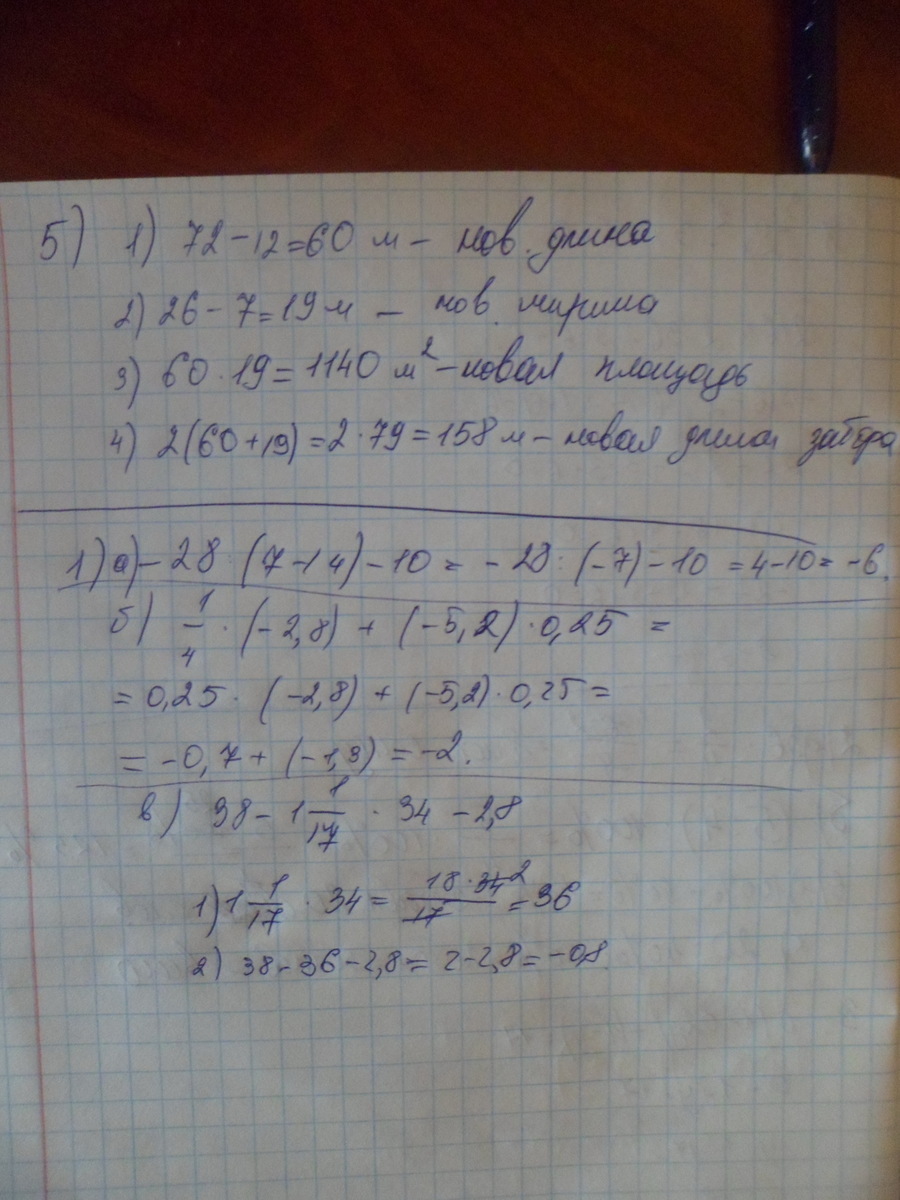 5) 1) 72 - 12 = 60 м - нов. длина
2) 26 - 7 = 19 м - нов. ширина
3) 60 · 19 = 1140 м² - новая площадь
4) 2(60 + 19) = 2 · 79 = 158 м - новая длина забора
1) а) - 28 : (7 - 14) - 10 = - 28 : (-7) - 10 = 4 - 10 = -6.
б) 1/4 · (-2,8) + (-5,2) · 0,25 =
= 0,25 · (-2,8) + (-5,2) · 0,25 =
= -0,7 + (-1,3) = -2.
в) 38 - 1 1/17 · 34 - 2,8
1) 1 1/17 · 34 = 18 · 34 2/17 = 36
2) 38 - 36 - 2,8 = 2 - 2,8 = -0,8